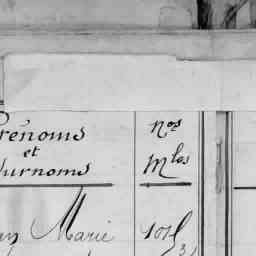 Prénoms
et
Surnoms
Nos
Mles
Marie